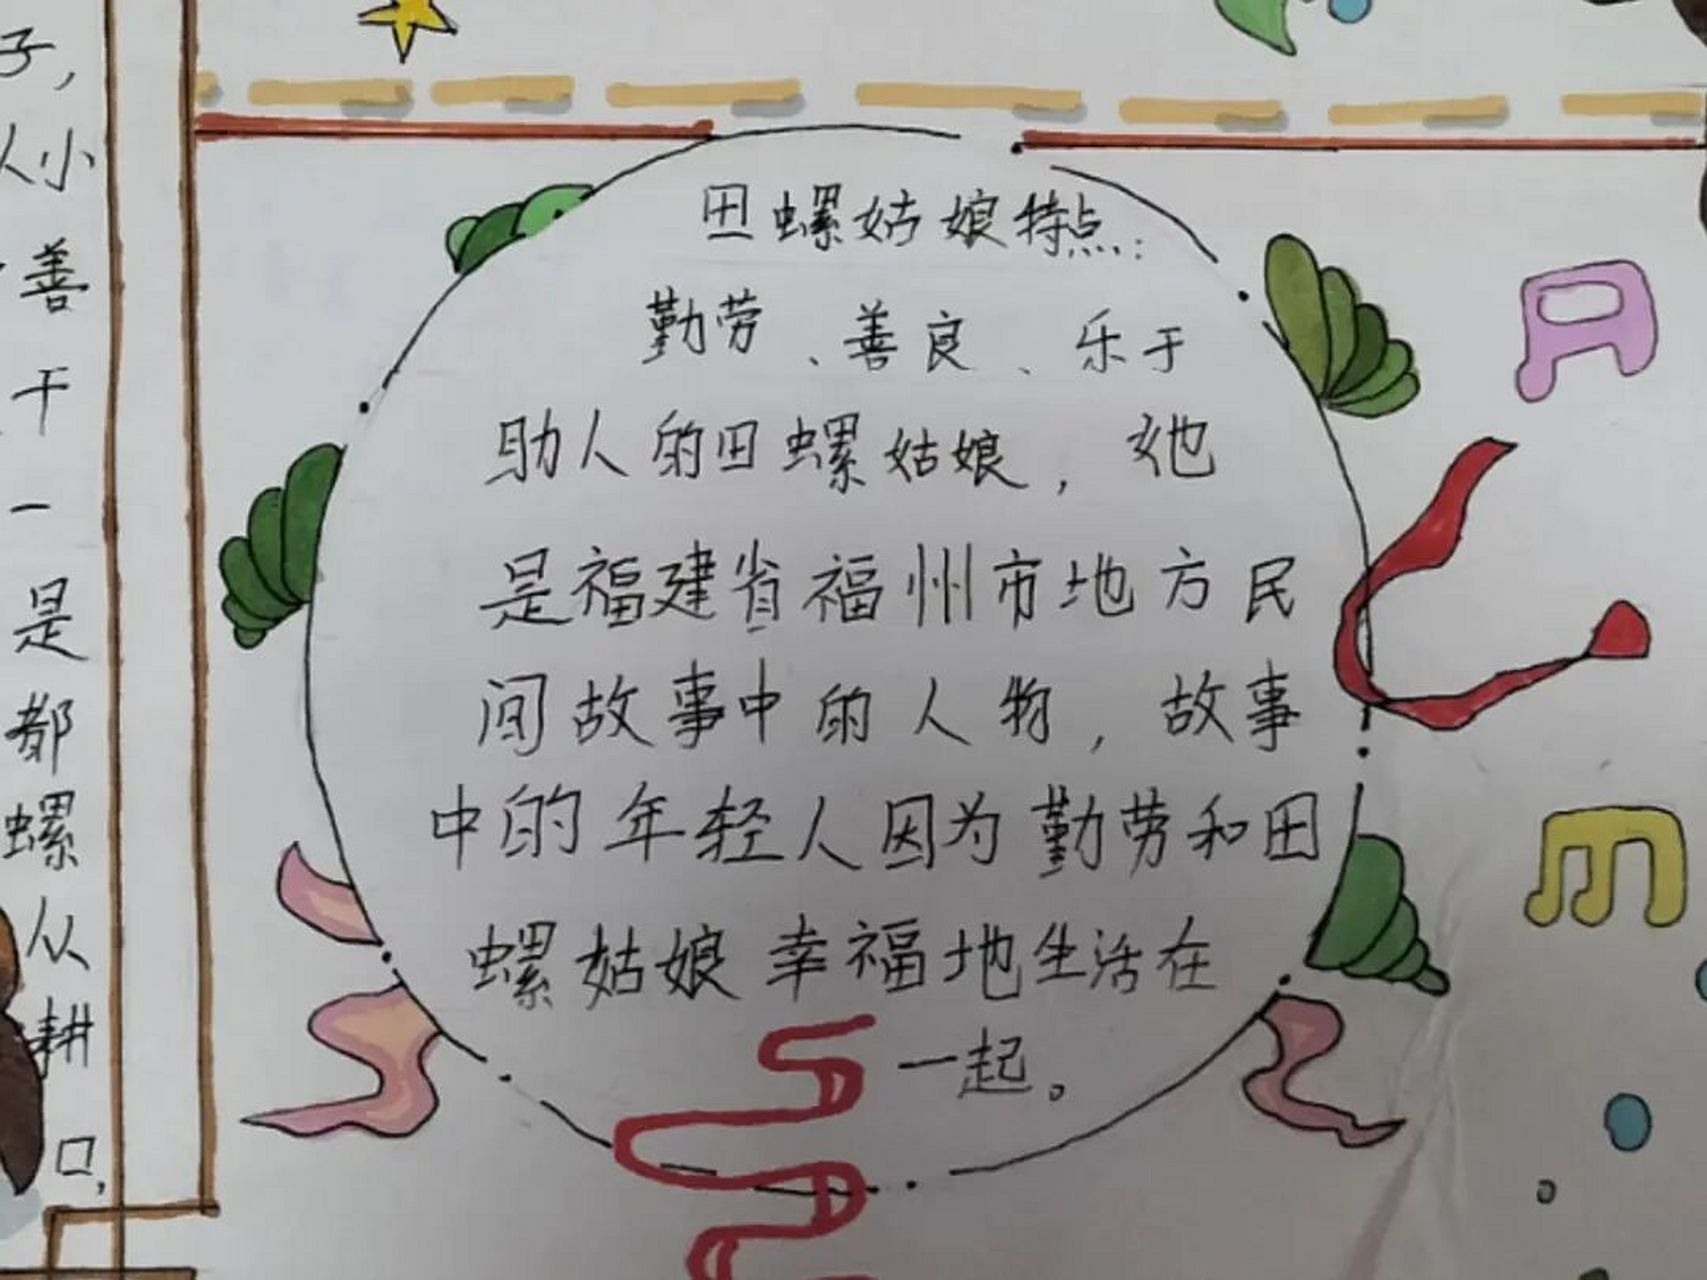 子，
人小
善
干
一
是
都
螺
从
耕
口，
田螺姑娘特点：
勤劳、善良、乐于
助人的田螺姑娘，她
是福建省福州市地方民
间故事中的人物，故事
中的年轻人因为勤劳和田
螺姑娘幸福地生活在
一起。